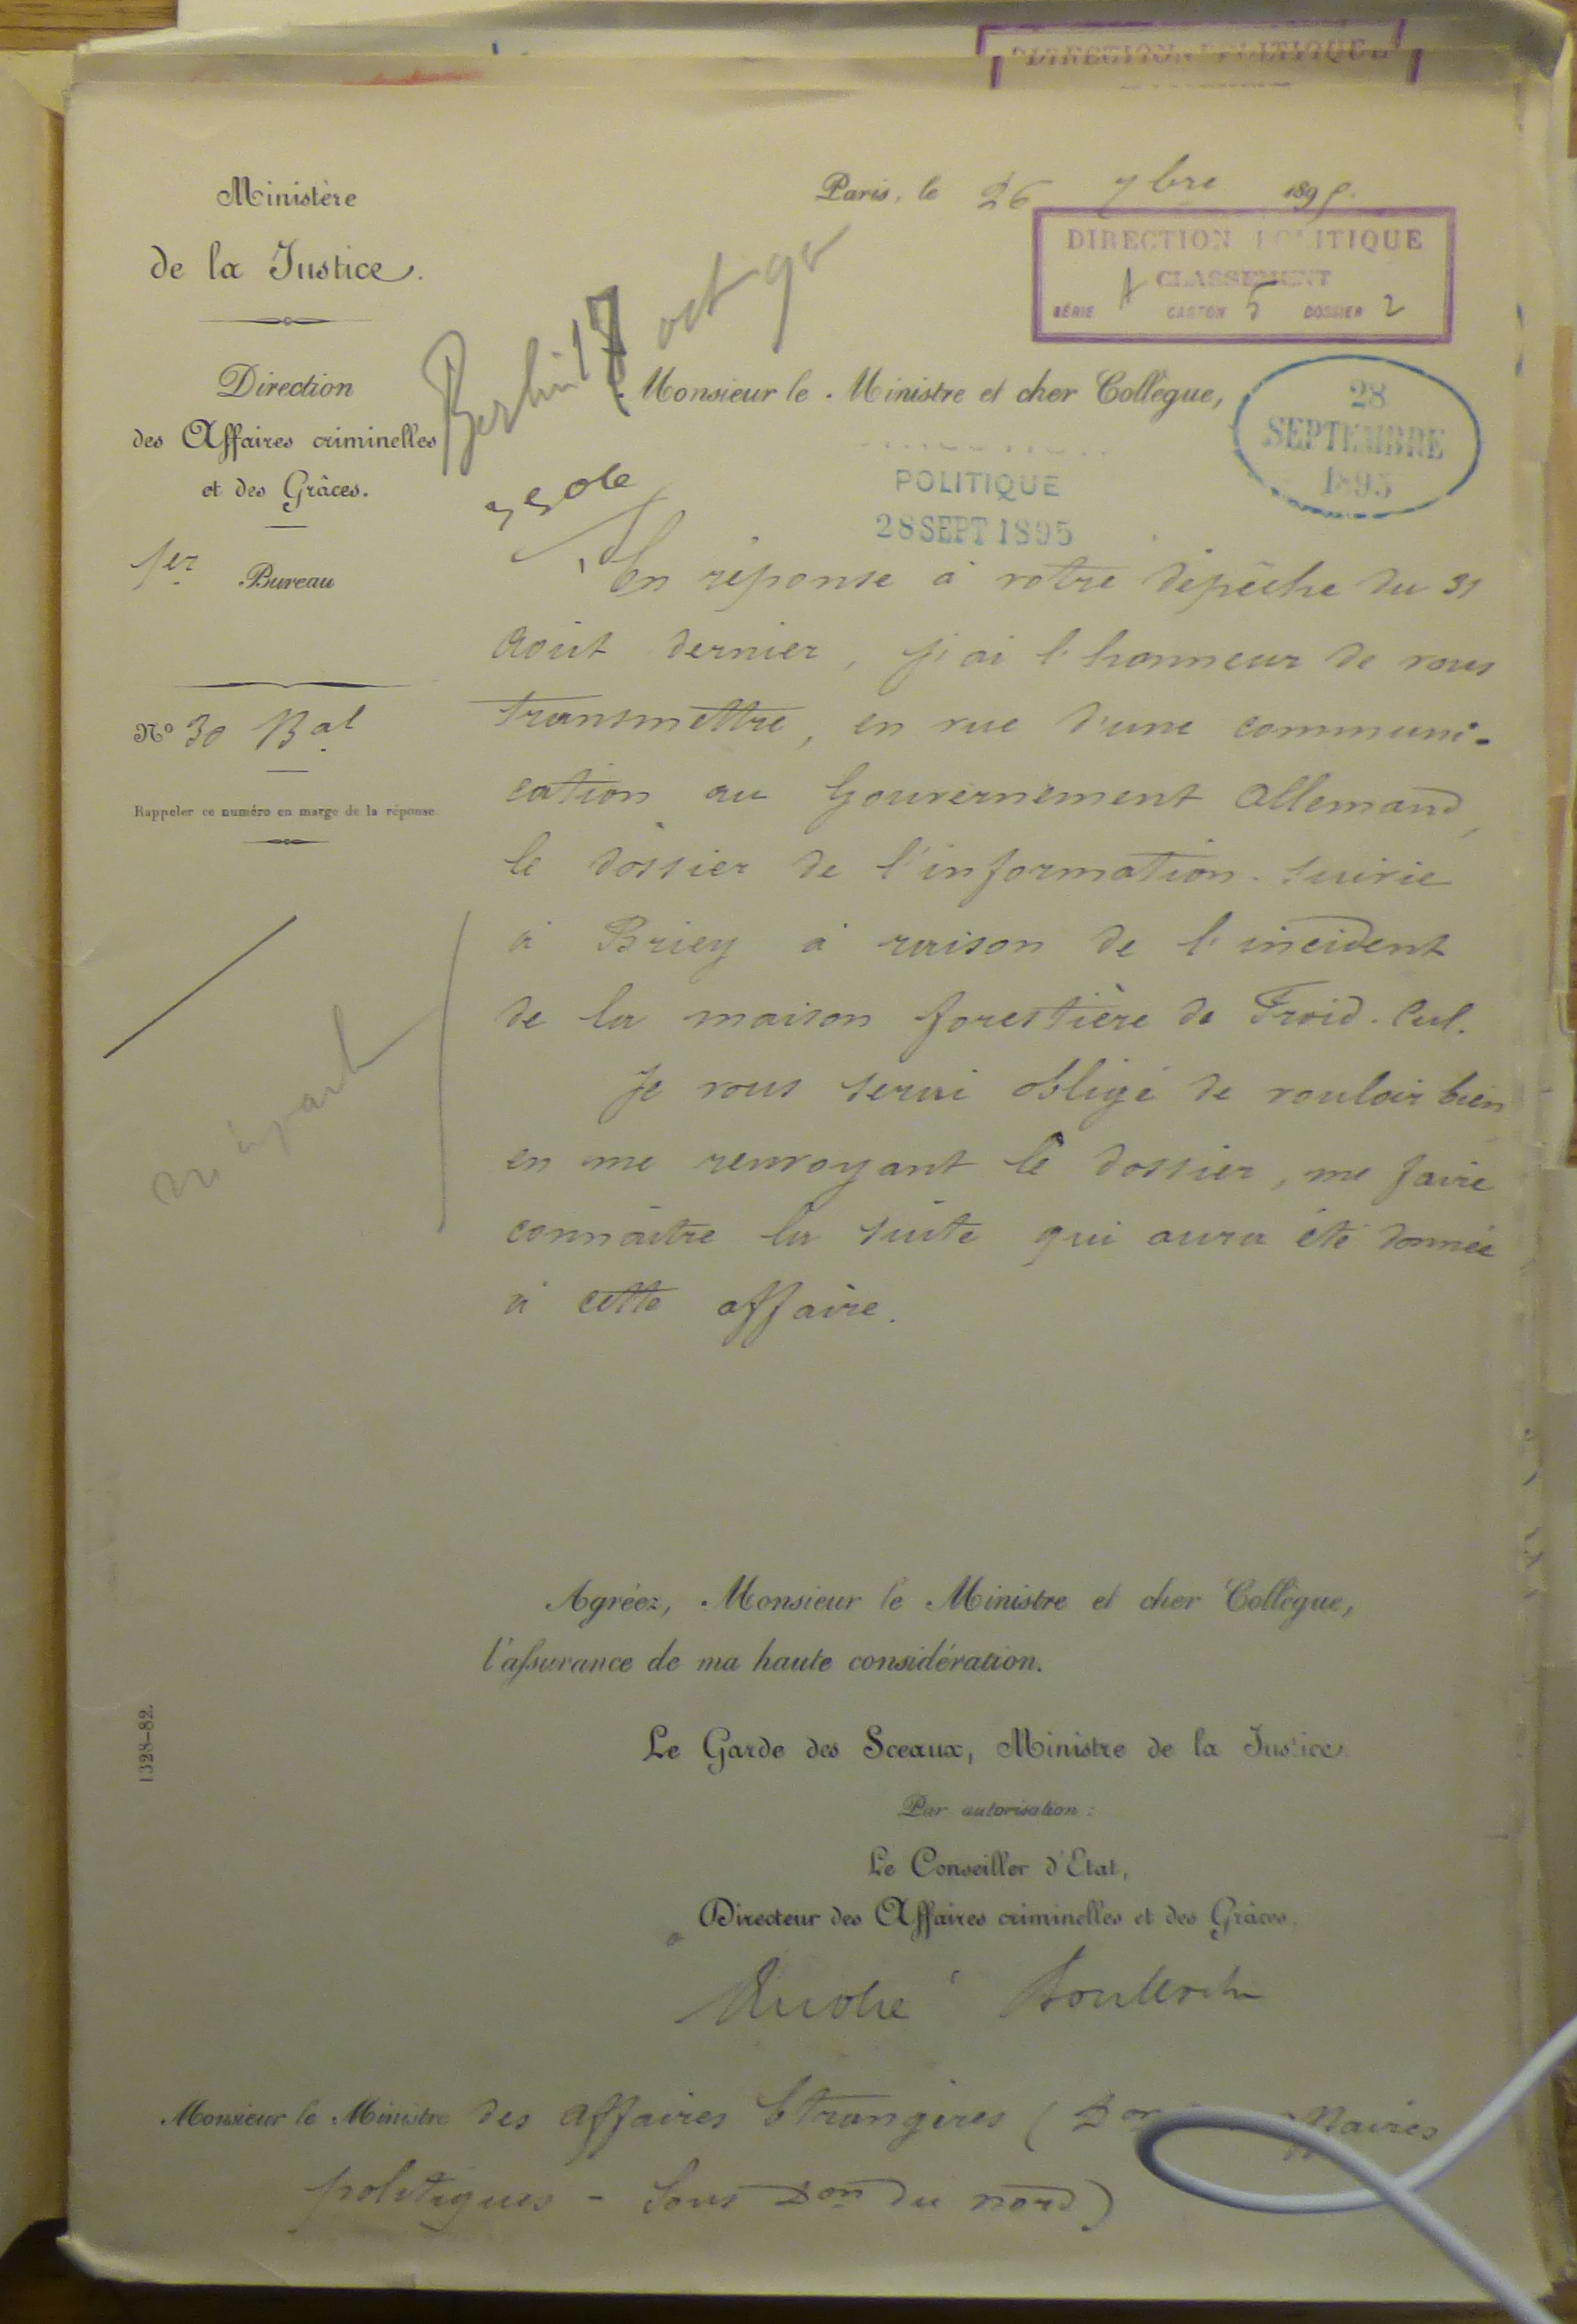 DIRECTION POLITIQUE
Ministère
de la Justice.
Direction
des Affaires criminelles
et des Grâces.
1er Bureau
No 30 Bal
Rappeler ce numéro en marge de la réponse
Paris, le 26 7bre 1895.
DIRECTION POLITIQUE
CLASSEMENT
SÉRIE A CARTON 5 DOSSIER 2
Berlin 17 oct 95
Monsieur le Ministre et cher Collègue,
28
SEPTEMBRE
1895
POLITIQUE
28 SEPT 1895
En réponse à votre dépêche du 31
Août dernier, j'ai l'honneur de vous
transmettre, en vue d'une communi-
cation au Gouvernement Allemand,
le dossier de l'information suivie
à Briey à raison de l'incident
de la maison forestière de Froid-Cul.
Je vous serai obligé de vouloir bien
en me renvoyant le dossier, me faire
connaître la suite qui aura été donnée
à cette affaire.
Agréez, Monsieur le Ministre et cher Collègue,
l'assurance de ma haute considération.
Le Garde des Sceaux, Ministre de la Justice
Par autorisation :
Le Conseiller d'Etat,
Directeur des Affaires criminelles et des Grâces,
1328-82.
Monsieur le Ministre des Affaires Etrangères (Don affaires
politiques - Sous Don du nord)